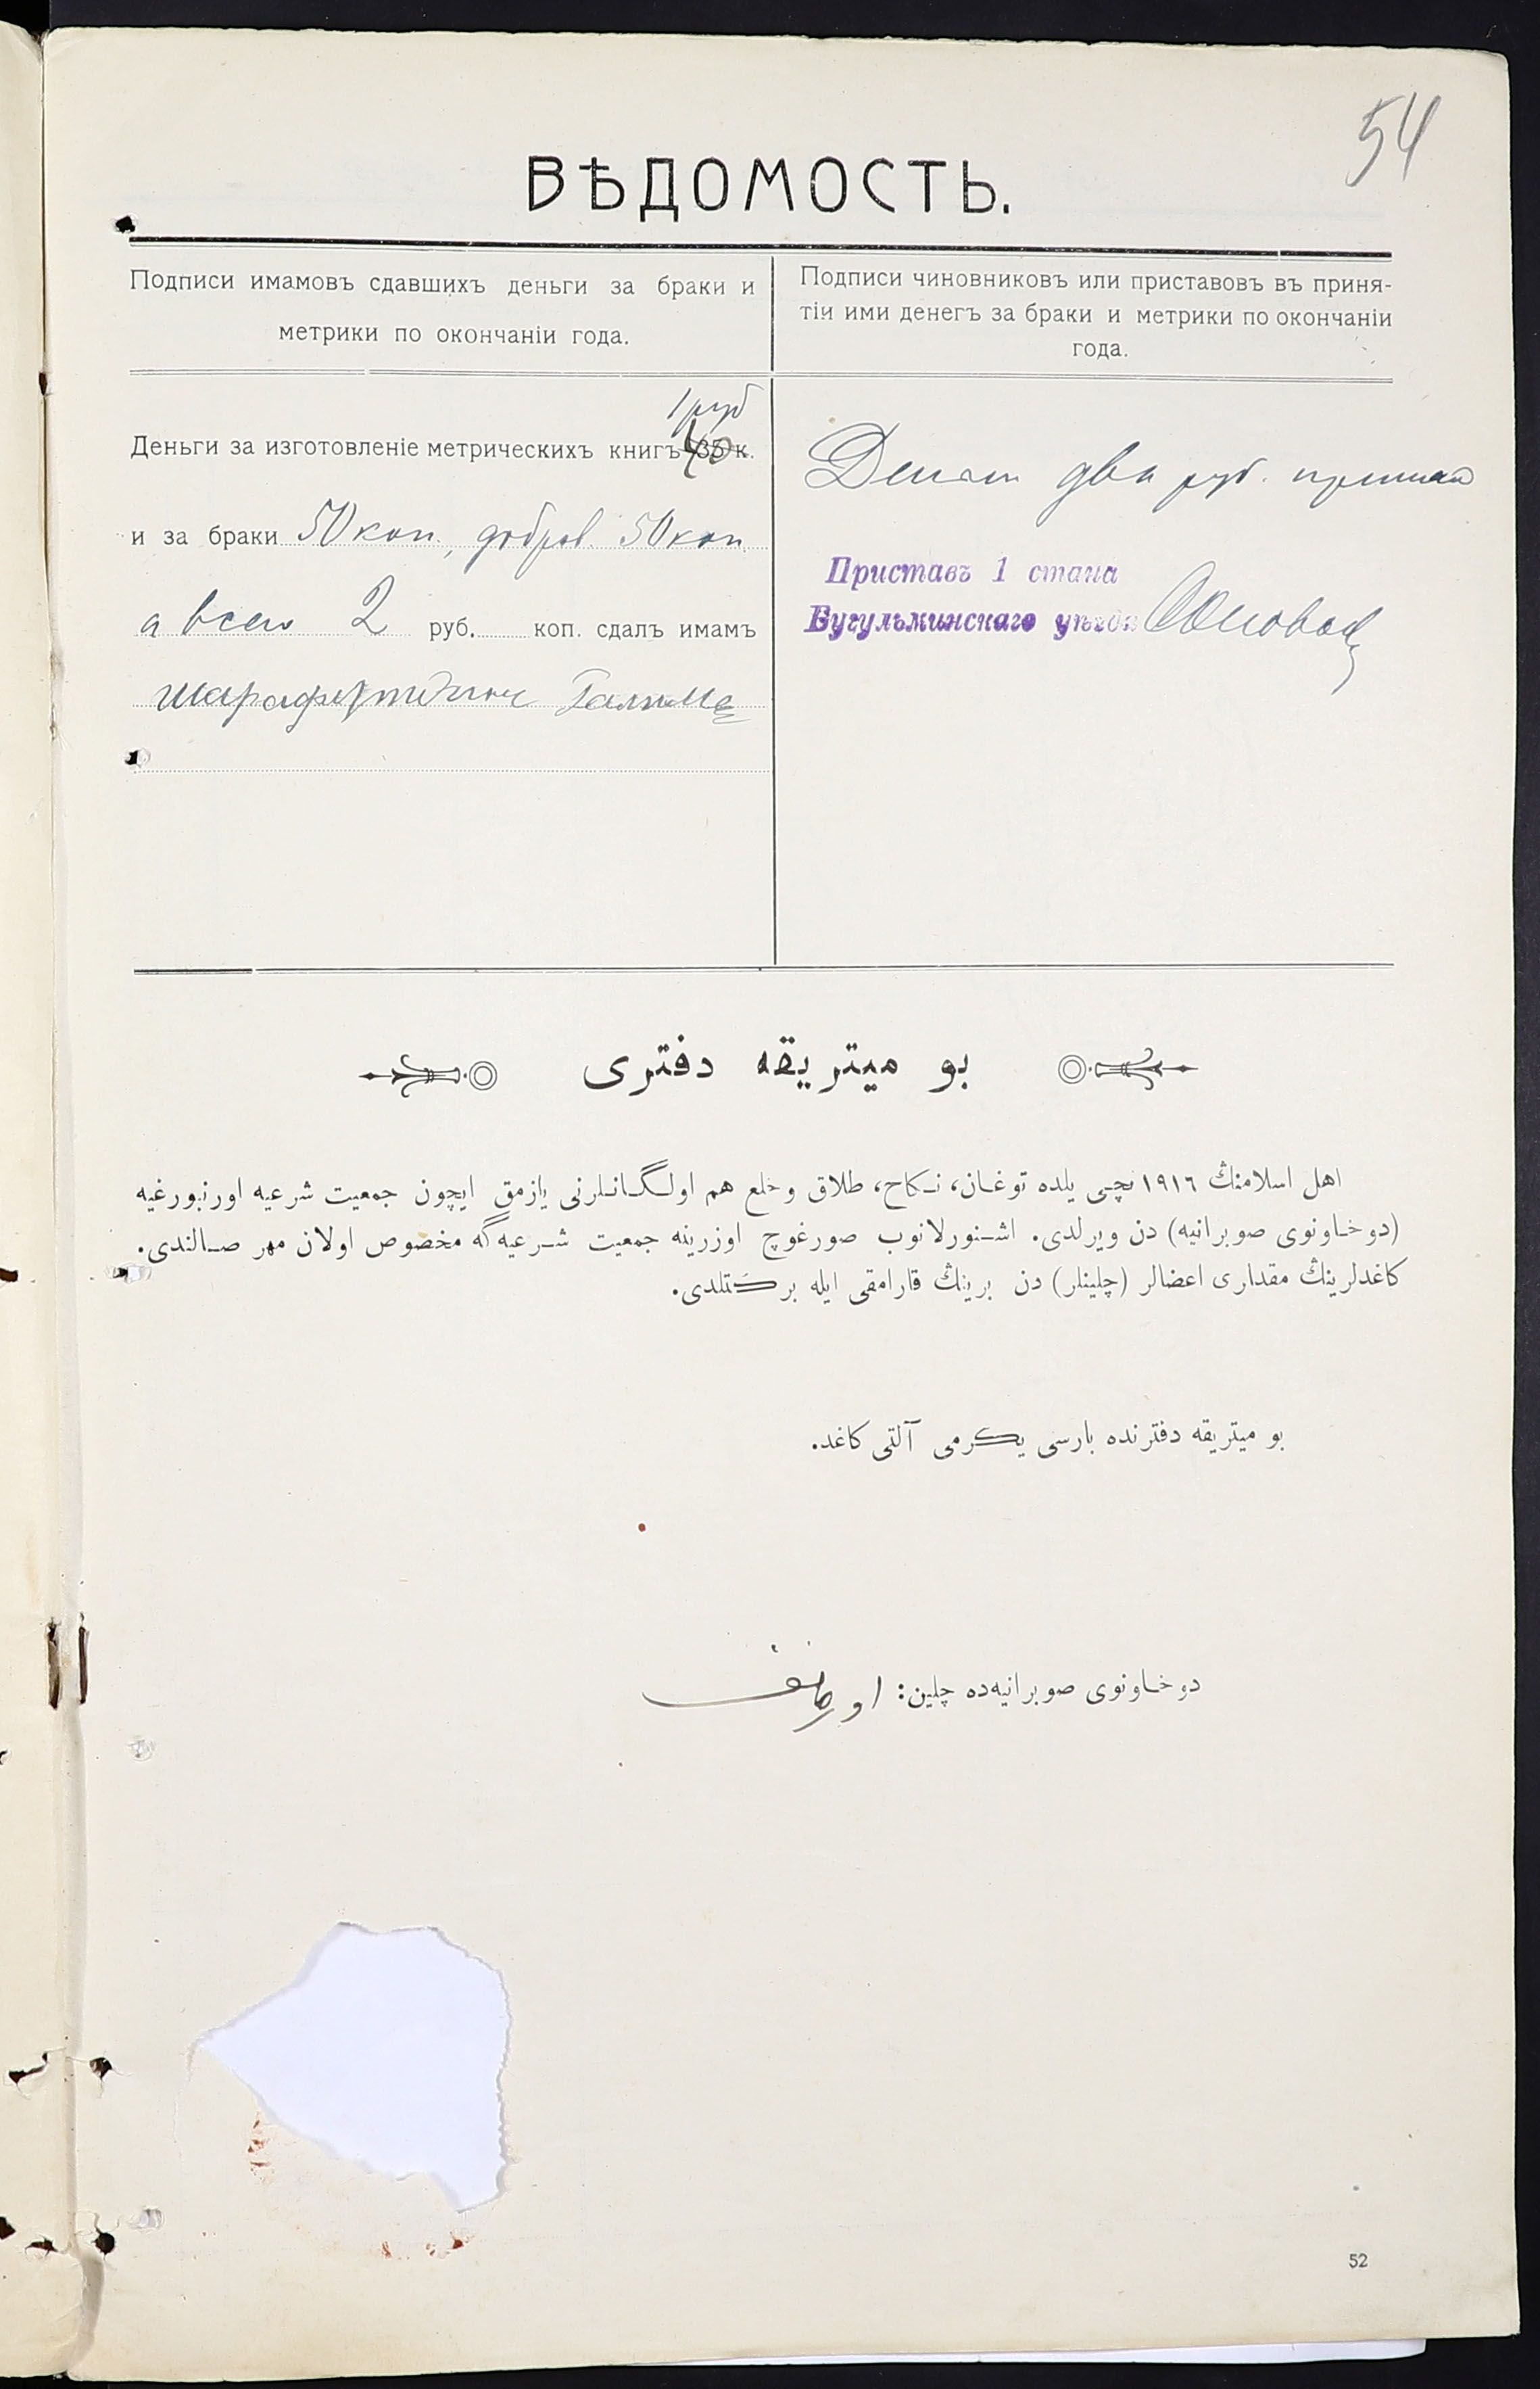 54
ВѢДОМОСТЬ.
Подписи имамовъ сдавшихъ деньги за браки и
метрики по окончаніи года.
Подписи чиновниковъ или приставовъ въ приня-
тіи ими денегъ за браки и метрики по окончаніи
года.
1 руб
Деньги за изготовленіе метрическихъ книгъ 40 к.
и за браки 50 коп., добров. 50 коп.
а всего 2 руб. коп. сдалъ имамъ
Шарафутдинъ
Деньги два руб. принялъ
Приставъ 1 стана
Бугульминскаго уѣзда
بو ميتريقه دفترى
اهل اسلامنڭ ١٩١٦ نچى يلده توغان، نكاح، طلاق وخلع هم اولگانلرنى يازمق ايچون جمعيت شرعيه اورنبورغيه
(دوخاونوى صوبرانيه) دن ويرلدى. اشنورلانوب صورغوچ اوزرينه جمعيت شرعيه گه مخصوص اولان مهر صالندى.
كاغدلرينڭ مقدارى اعضالر (چلينلر) دن برينڭ قارامقى ايله بركتلدى.
بو ميتريقه دفترنده بارسى يكرمى آلتى كاغد.
دوخاونوى صوبرانيه‌ده چلين:
52